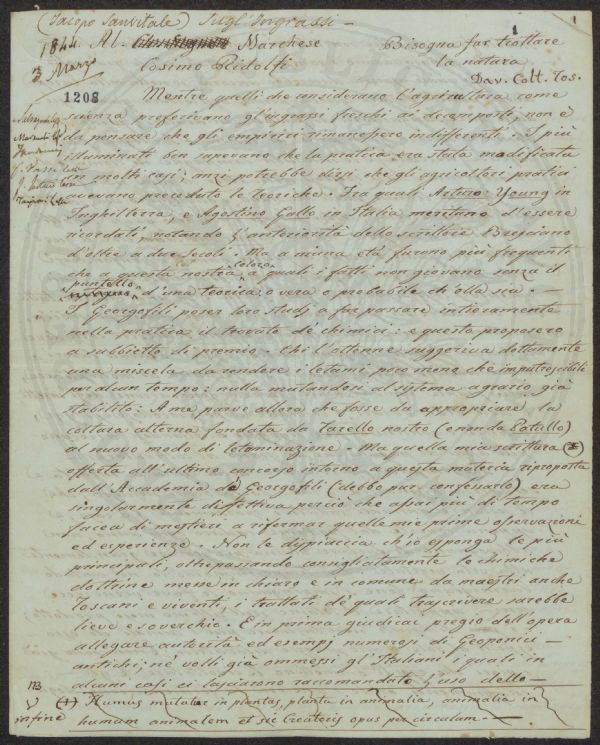 (Jacopo Sanvitale) Sugl'Ingrassi —
1
1
1844. Al Marchese
3 Marzo
Cosimo Ridolfi
Bisogna far trottare
la natura
Dav. Colt. Tos.
1208
Mentre quelli che considerano l'agricultura come
scienza preferivano gl'ingrassi freschi ai decomposti, non è
da pensare che gli empirici rimanessero indifferenti. I più
illuminati ben sapevano che la pratica era stata modificata
in molti casi; anzi potrebbe dirsi che gli agricoltori pratici
avevano preceduto le teoriche. Fra quali Arturo Young in
Inghilterra, e Agostino Gallo in Italia meritano d'essere
ricordati notando l'anteriorità dello scrittore Bresciano
d'oltre a due secoli. Ma a niuna età furono più frequenti
che a questa nostra coloro a quali i fatti non giovano senza il
puntello d'una teorica, o vera o probabile ch'ella sia. —
I Georgofili poser loro studj a far passare intieramente
nella pratica il trovato de' chimici: e questo proposero
a subbietto di premio. Chi l'ottenne suggeriva dottamente
una miscela da rendere i letami poco meno che imputrescibili
per alcun tempo: nulla mutandosi al sistema agrario già
stabilito: A me parve allora che fosse da appropriare la
coltura alterna fondata da Tarello nostro (e non da Patullo)
al nuovo modo di letaminazione. Ma quella mia scrittura
offerta all'ultimo concorso intorno a questa materia riproposta
dall'Accademia de' Georgofili (debbo pur confessarlo) era
singolarmente difettiva perciò che assai più di tempo
facea di mestieri a rifermar quelle mie prime osservazioni
ed esperienze. Non le dispiaccia ch'io esponga le più
principali, oltrepassando consigliatamente le chimiche
dottrine messe in chiaro e in comune da maestri anche
Toscani e viventi, i trattati de' quali trascrivere sarebbe
lieve e soverchio. E in prima giudicai pregio dell'opera
allegare autorità ed esempj numerosi di Geoponici
antichi; nè volli già ommessi gl'Italiani i quali in
alcuni casi ci lasciarono raccomandato l'uso dello —
(1) Humus mutatur in plantas, planta in animalia, animalia in
infine
humum animalem et sic Creatoris opus per circulum —